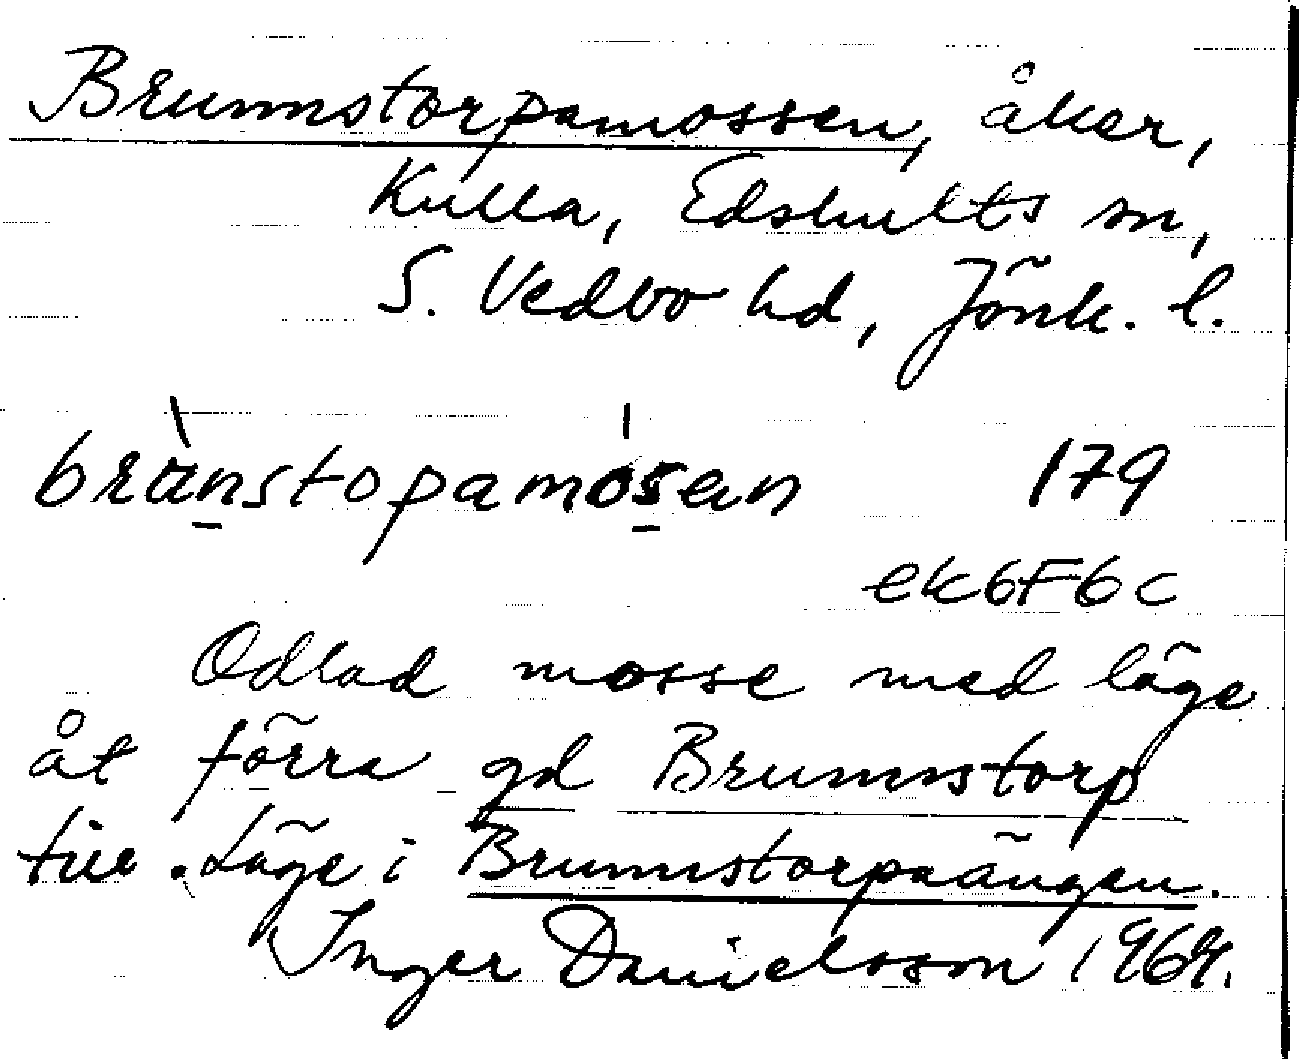 Brunnstorpamossen, åker,
Kulla, Edshults sn,
S. Vedbo hd, Jönk. l.
brànstopamósen 179
ek6F6c
Odlad mosse med läge
åt förra gd Brunnstorp
till. Läge i Brunnstorpaängen.
Inger Danielsson 1969.